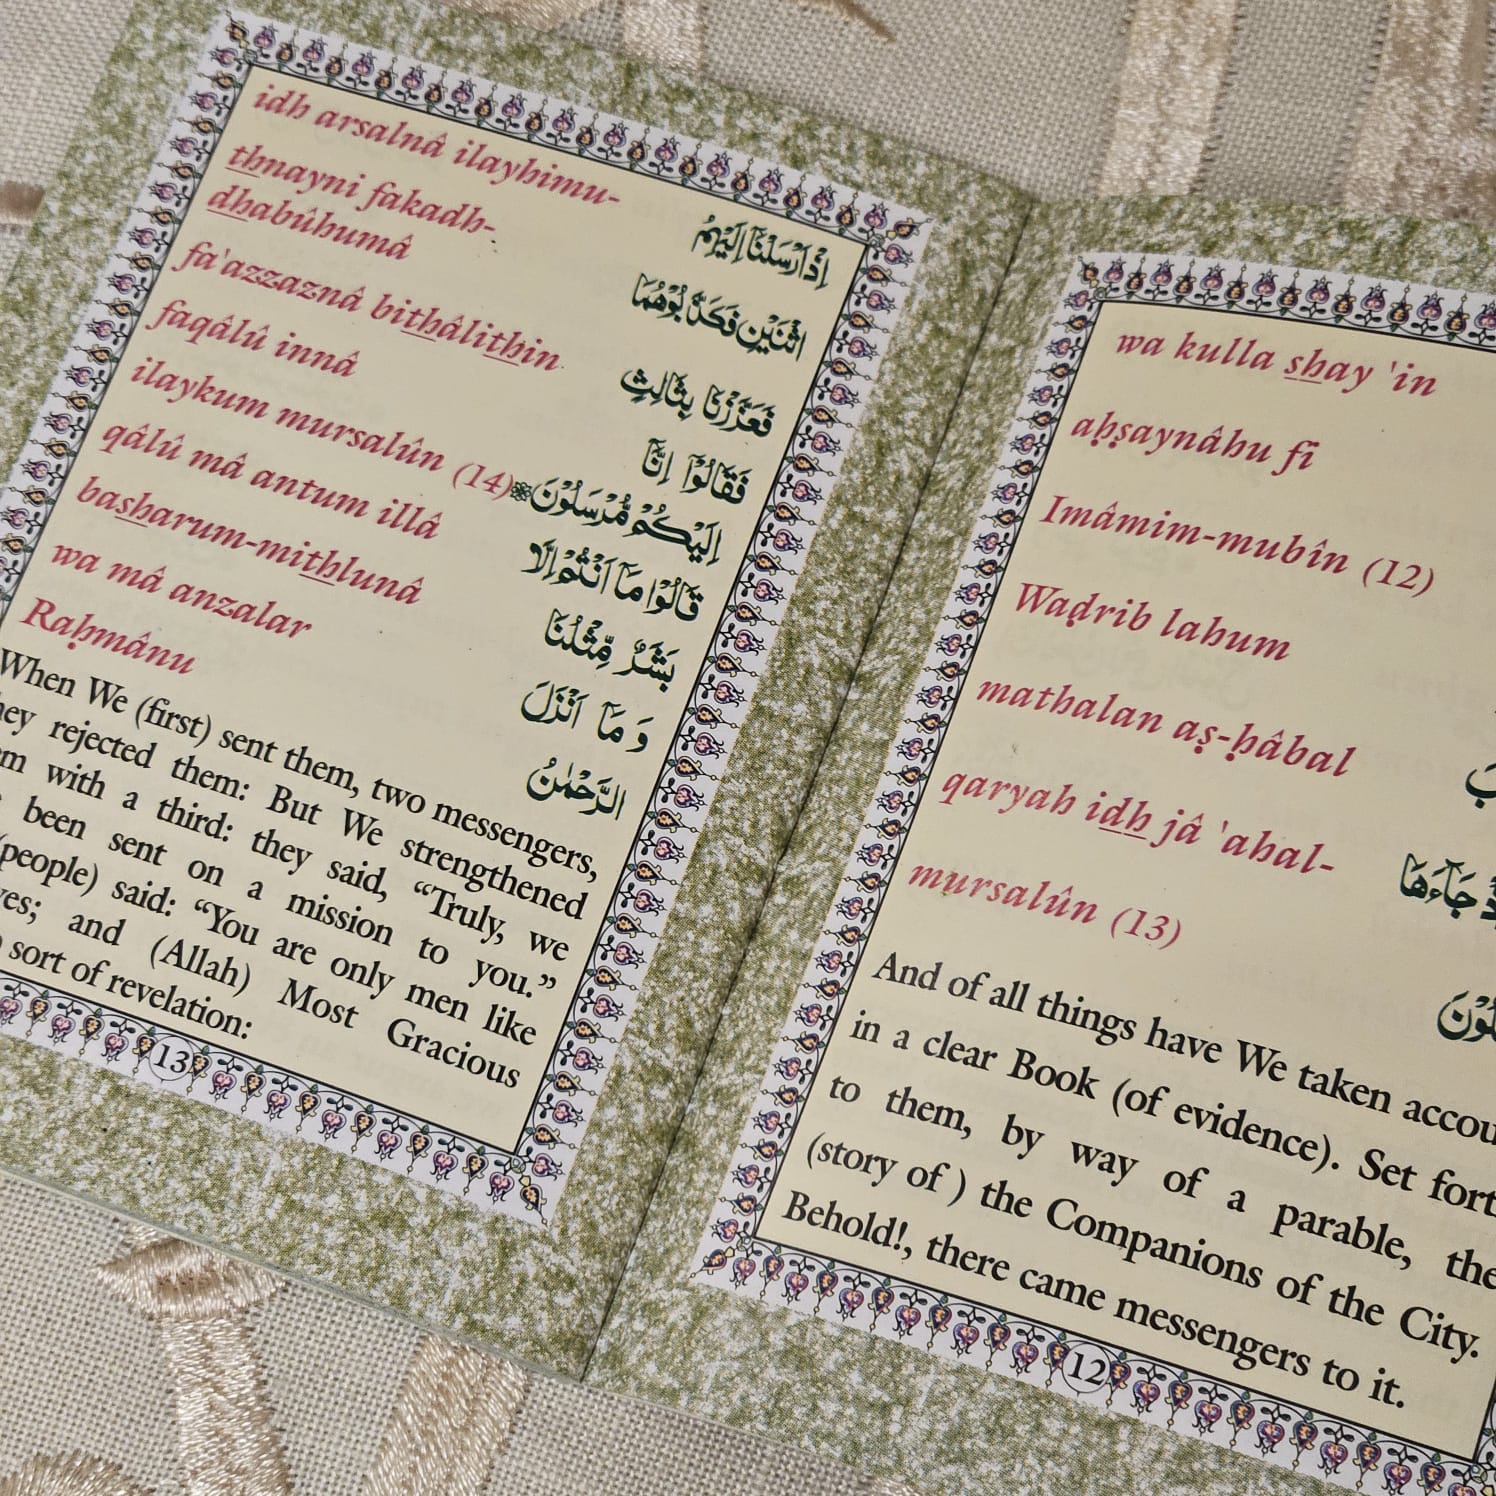 wa kulla shay 'in
aḥṣaynâhu fî
Imâmim-mubîn (12)
Waḍrib lahum
mathalan aṣ-ḥâbal
qaryah idh jâ 'ahal-
جَآءَهَا
mursalûn (13)
And of all things have We taken accou
in a clear Book (of evidence). Set fort
to them, by way of a parable, the
(story of ) the Companions of the City.
Behold!, there came messengers to it.
12
idh arsalnâ ilayhimu-
thnayni fakadh-
dhabûhumâ
fa'azzaznâ bithâlithin
faqâlû innâ
ilaykum mursalûn (14)
qâlû mâ antum illâ
basharum-mithlunâ
wa mâ anzalar
Raḥmânu
اِذْ اَرْسَلْنَآ اِلَيْهِمُ
اثْنَيْنِ فَكَذَّبُوْهُمَا
فَعَزَّزْنَا بِثَالِثٍ
فَقَالُوْٓا اِنَّآ
اِلَيْكُمْ مُّرْسَلُوْنَ
قَالُوْا مَآ اَنْتُمْ اِلَّا
بَشَرٌ مِّثْلُنَا
وَ مَآ اَنْزَلَ
الرَّحْمٰنُ
When We (first) sent them, two messengers,
hey rejected them: But We strengthened
em with a third: they said, “Truly, we
been sent on a mission to you.”
(people) said: “You are only men like
ves; and (Allah) Most Gracious
sort of revelation:
13